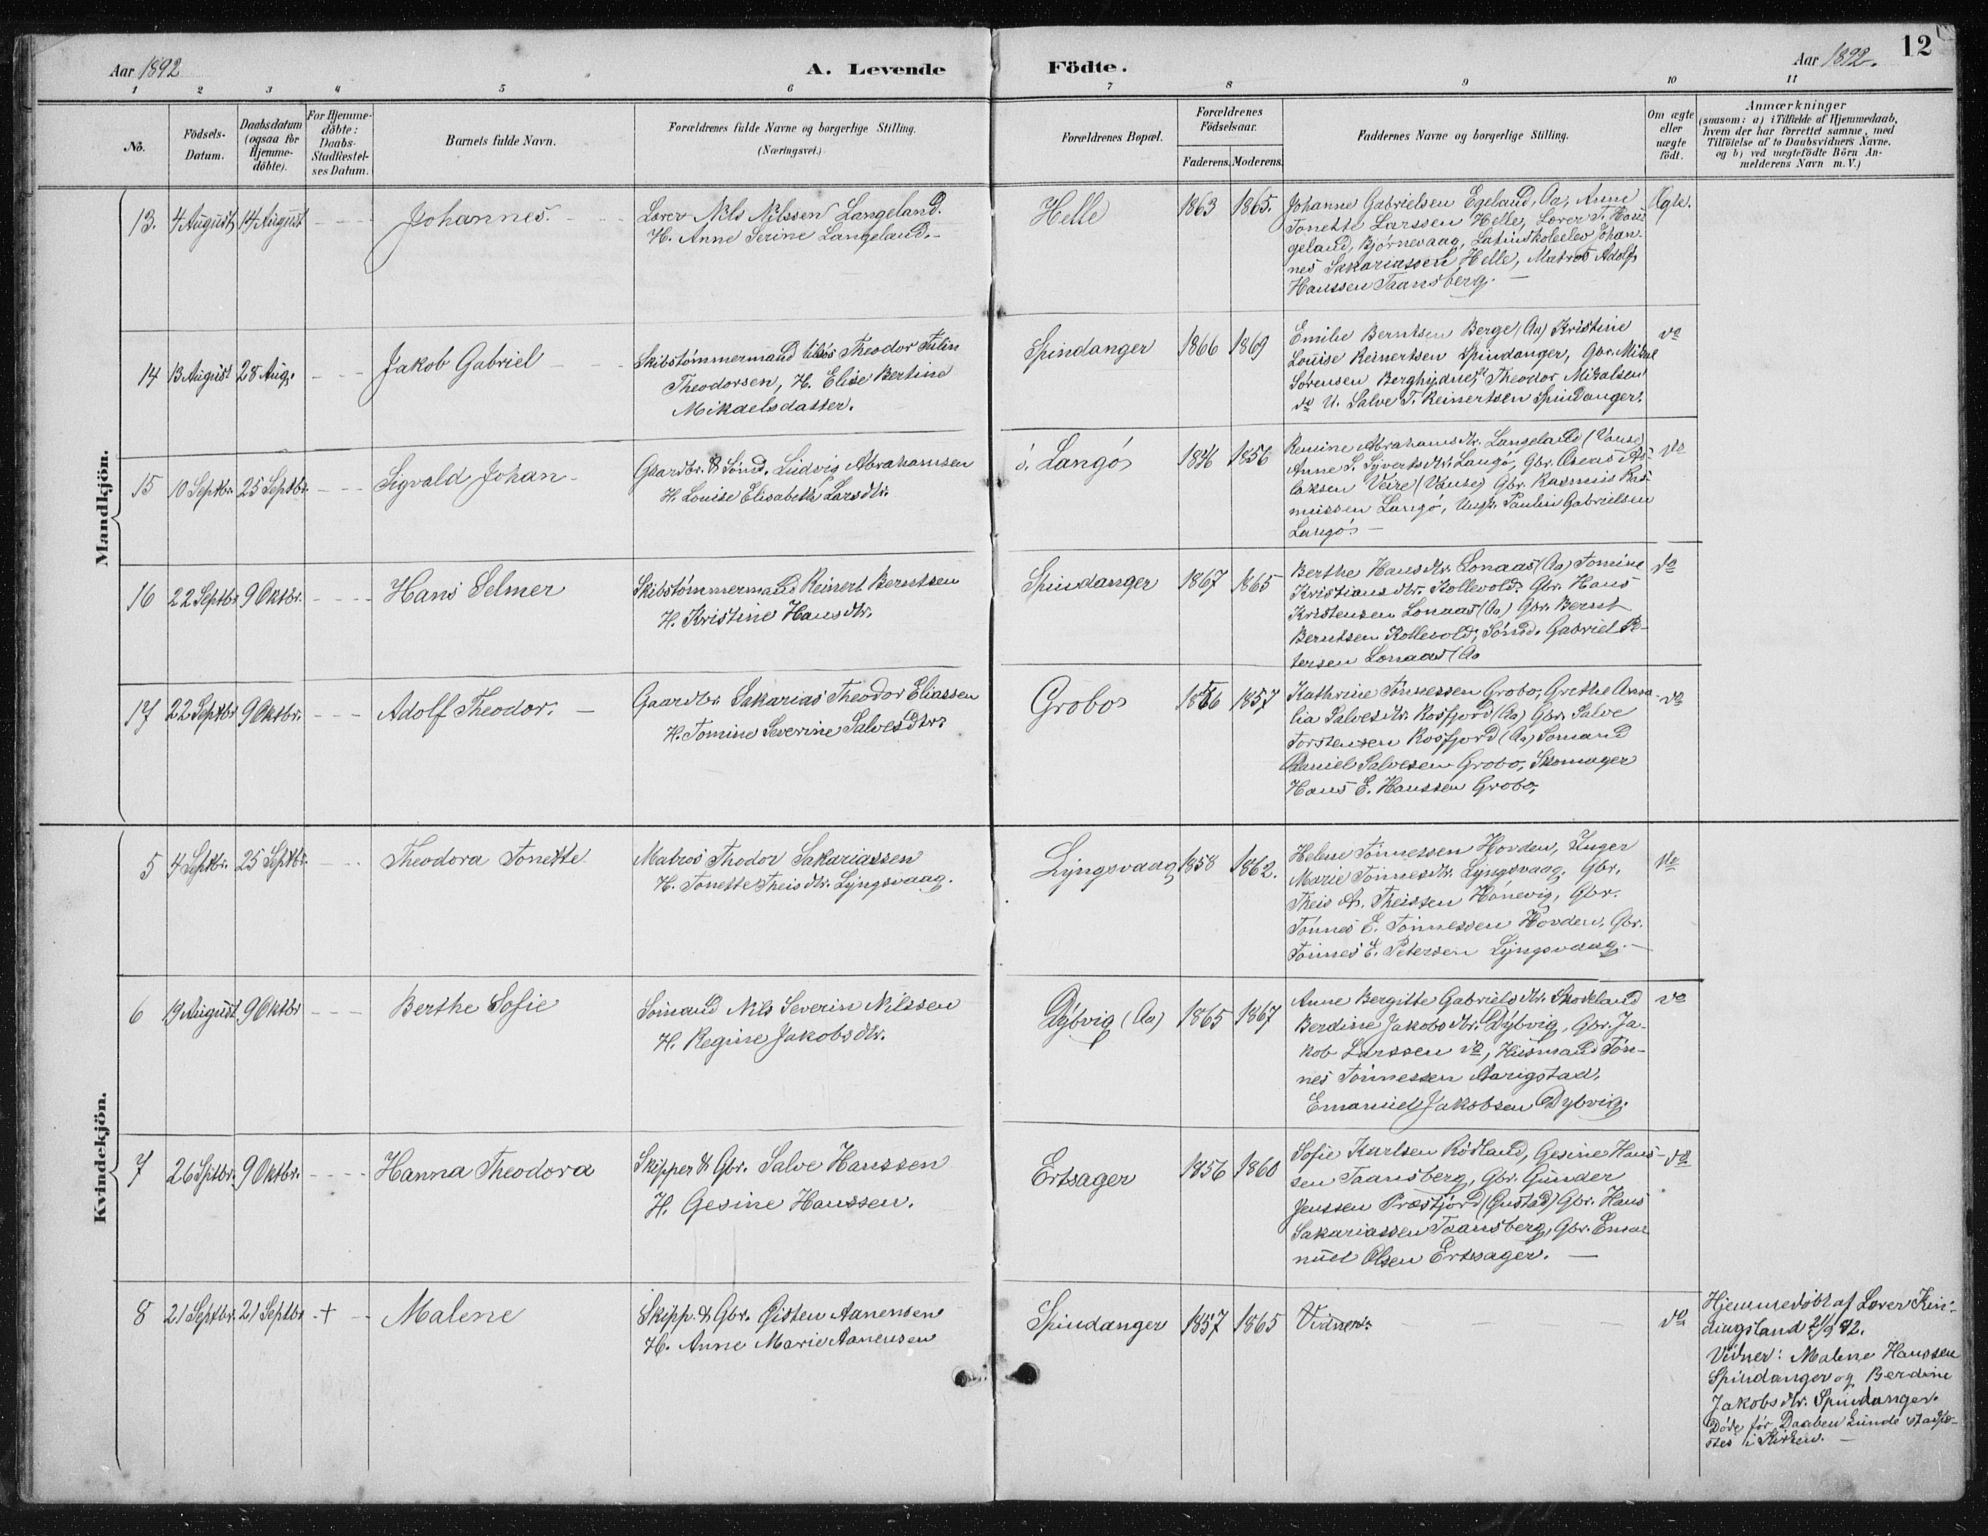 Aar 1892
A. Levende
Födte.
Aar 1892.
12
1 2 3 4 5 6 7 8 9 10 11
No.
Födsels-
Datum.
Daabsdatum
(ogsaa för
Hjemme-
döbte).
For Hjemme-
döbte:
Daabs-
Stadfæstel-
ses Datum.
Barnets fulde Navn.
Forældrenes fulde Navne og borgerlige Stilling.
(Næringsvei.)
Forældrenes Bopæl.
Forældrenes
Födselsaar.
Faderens. Moderens.
Faddernes Navne og borgerlige Stilling.
Om ægte
eller
uægte
födt.
Anmærkninger
(saasom: a) i Tilfælde af Hjemmedaab,
hvem der har forrettet samme, med
Tilföielse af to Daabsvidners Navne,
og b) ved uægtefödte Börn An-
melderens Navn m. V.)
Mandkjön.
13. 4 August 14 August
Johannes.
Lærer Nils Nilssen Langeland.
H. Anne Serine Langeland.
Helle
1863 1865.
Johanne Gabrielsen Egeland, Aa, Anne
Tonette Larssen Helle, Lærer T. Hau-
geland, Bjørnevaag, Latinskoleelev Johan-
nes Sakariassen Helle, Matros Adolf
Hanssen Taansberg.
Ægte.
14 13 August 28 Aug.
Jakob Gabriel
Skibstømmermand Theodor Tulin
Theodorsen, H. Elise Bertine
Mikaelsdatter.
Spindanger
1866 1869
Emilie Berntsen Berge (Aa) Kristine
Louise Reinertsen Spindanger, Gbr. Mikal
Sørensen Theodor Mikalsen
do U. Salve T. Reinertsen Spindanger.
do
15 10 Septbr. 25 Septbr.
Sigvald Johan
Gaardbr. & Sømd. Ludvig Abrahamsen
H. Louise Elisabeth Larsdtr.
Langø
1856
Abrahamsdtr. Langeland (Vanse)
Anne S. Syvertsdtr. Langø, Gbr. Oseas As-
laksen Veire (Vanse) Gbr. Rasmus Ras-
mussen Langø, Ungk. Paulin Gabrielsen
Langø
do
16 22 Septbr. 9 Oktbr.
Hans Selmer
Skibstømmermand Reinert Berntsen
H. Kristine Hansdtr.
Spindanger
1867 1865
Berthe Hansdtr. Lonaas (Aa) Tomine
Kristiansdtr. Kollevold. Gbr. Hans
Kristensen Lonaas (Aa) Gbr. Bernt
Berntsen Kollevold, Sømd. Gabriel Pe-
tersen Lonaas (Aa
do
17 22 Septbr 9 Oktbr.
Adolf Theodor.
Gaardbr. Sakarias Theodor Eliassen
H. Tomine Severine Salvesdtr.
Grobo
1856 1857
Kathrine Tønnessen Grobo, Grethe Ama-
lia Salvesdtr. Rosfjord (Aa) Gbr. Salve
Torstensen Rosfjord (Aa) Sømand
Daniel Salvesen Grobo, Skomager
Hans E. Hanssen Grobo,
do
Kvindekjön.
5 4 Septbr. 25 Septbr.
Theodora Tonette
Matros Thodor Sakariassen
H. Tonette Theisdtr. Lyngsvaag.
Lyngsvaag
1858 1862.
Helene Tønnessen Hovden, Inger
Marie Tønnesdtr. Lyngsvaag, Gbr.
Theis A. Theissen Hønevig, Gbr.
Tønnes E. Tønnessen Hovden, Gbr.
Tønnes E. Petersen Lyngsvaag.
do
6 19 August 9 Oktbr
Berthe Sofie
Sømand Nils Severin Nilssen
H. Regine Jakobsdtr.
Dybvig (Aa)
1865 1867
Anne Bergitte Gabrielsdtr. Skoveland
Berdine Jakobsdtr. Dybvig, Gbr. Ja-
kob Larssen do, Husmand Tøn-
nes Tønnessen Aarigstad,
Emanuel Jakobsen Dybvig.
do
7 26 Sptbr. 9 Oktbr.
Hanna Theodora
Skipper & Gbr. Salve Hanssen
H. Gesine Hanssen.
Ertsager
1856 1860
Sofie Karlsen Rødland, Gesine Hans-
sen Taansberg, Gbr. Gunder
Jenssen Præstfjord Gbr. Hans
Sakariassen Taansberg, Gbr. Ema-
nuel Olsen Ertsager.
do
8 21 Septbr. 21 Septbr. +
Malene
Skipp. & Gbr. Øisten Aanensen
H. Anne Marie Aanensen
Spindanger
1857 1865
Vidner.
do
Hjemmedøbt af Lærer Kin-
dingsland 21/9 92.
Vidner: Malene Hanssen
Spindanger og Berdine
Jakobsdtr. Spindanger.
Døde før Daaben kunde stadfæ-
stes i Kirken.